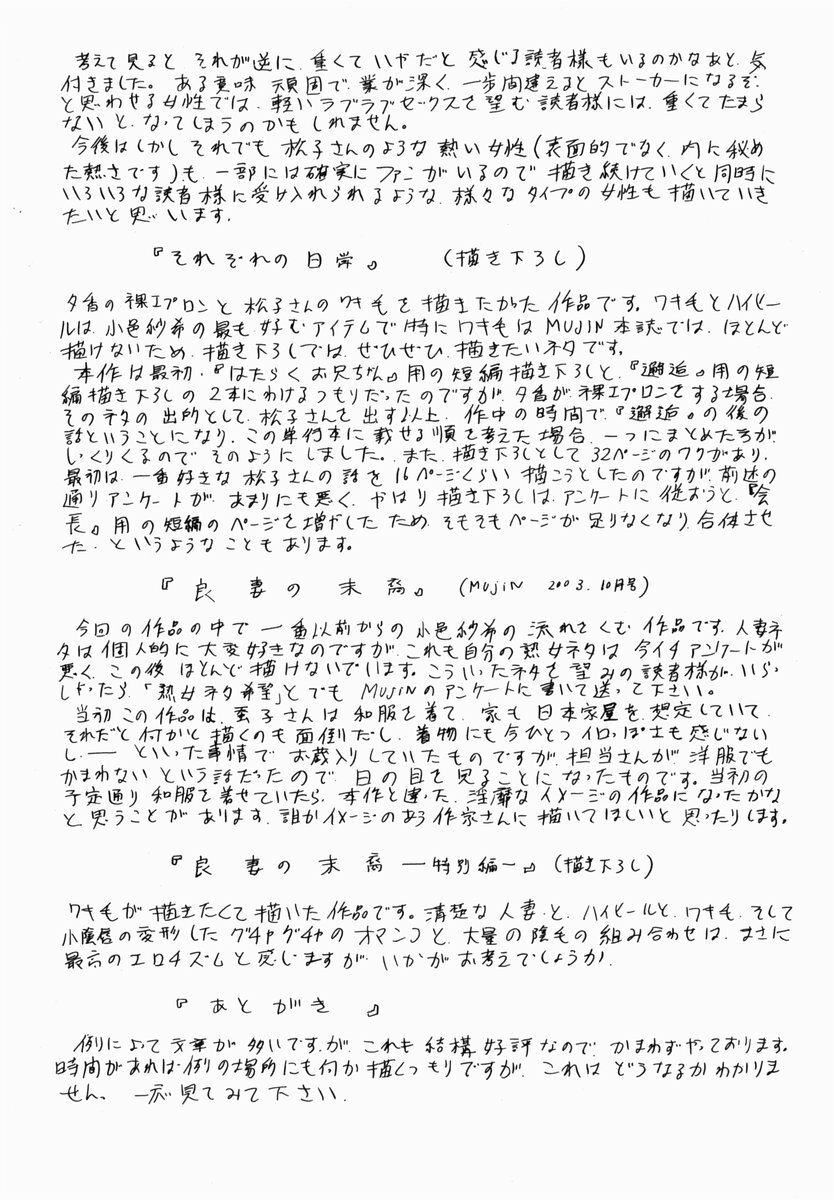 考えて見ると それが逆に、重くていやだと感じる読者様もいるのかなあと、気
付きました。ある意味 頑固で、業が深く、一歩間違えるとストーカーになるぞ
と思わせる女性では、軽いラブラブセックスを望む読者様には、重くてたまら
ないと、なってしまうのかもしれません。
今後はしかし それでも 松子さんのような 熱い女性(表面的でなく、内に秘め
た熱さです)も、一部には確実にファンがいるので 描き続けていくと同時に
いろいろな読者様に受け入れられるような、様々なタイプの女性も描いていき
たいと思います。
『それぞれの日常』 (描き下ろし)
夕香の裸エプロンと松子さんのワキ毛を描きたかった作品です。ワキ毛とハイヒー
ルは、小邑紗希の最も好むアイテムで特にワキ毛はMUJIN本誌では、ほとんど
描けないため、描き下ろしでは、ぜひぜひ、描きたいネタです。
本作は最初、『はたらくお兄ちゃん』用の短編描き下ろしと、『邂逅』用の短
編描き下ろしの2本にわけるつもりだったのですが、夕香が裸エプロンをする場合、
そのネタの出所として、松子さんを出す以上、作中の時間で、『邂逅』の後の
話ということになり、この単行本に載せる順を考えた場合、一つにまとめた方が
しっくりくるので そのようにしました。また、描き下ろしとして32ページのワクがあり、
最初は、一番好きな松子さんの話を16ページくらい描こうとしたのですが、前述の
通りアンケートが、あまりにも悪く、やはり描き下ろしは、アンケートに従おうと、『会
長』用の短編のページを増やしたため、そもそもページが足りなくなり、合体させ
た、というようなこともあります。
『良妻の末裔』 (MUJIN 2003.10月号)
今回の作品の中で一番以前からの小邑紗希の流れをくむ作品です。人妻ネ
タは個人的に大変好きなのですが、これも自分の熟女ネタは今イチアンケートが
悪く、この後ほとんど描けないでいます。こういったネタを望みの読者様が、いらっ
しゃったら、「熟女ネタ希望」とでも MUJINのアンケートに書いて送って下さい。
当初この作品は、 子さんは和服を着て、家も日本家屋を想定していて、
それだと何かと描くのも面倒だし、着物にも今ひとつイロっぽさも感じない
し、── といった事情で お蔵入りしていたものですが、担当さんが洋服でも
かまわないという話だったので、日の目を見ることになったものです。当初の
予定通り和服を着せていたら、本作と違った、淫靡なイメージの作品になったかな
と思うことがあります。誰かイメージのあう作家さんに描いてほしいと思ったりします。
『良妻の末裔 ―特別編―』(描き下ろし)
ワキ毛が描きたくて描いた作品です。清楚な人妻と、ハイヒールと、ワキ毛、そして
小陰唇の変形したグチャグチャのオマンコと、大量の陰毛の組み合わせは、まさに
最高のエロチズムと感じますが いかがお考えでしょうか。
『あとがき』
例によって文章が多いですが、これも結構好評なので、かまわずやっております。
時間があれば例の場所にも何か描くつもりですが、これは どうなるかわかりま
せん。一応見てみて下さい。